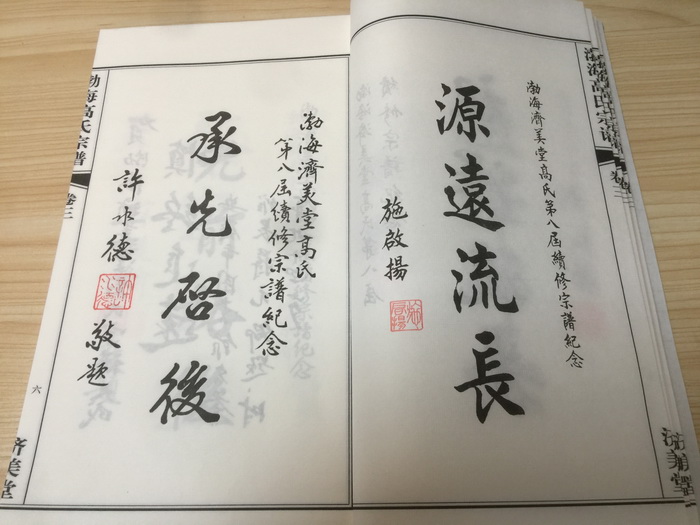 渤海濟美堂高氏第八屆續修宗譜紀念
源遠流長
施啟揚
渤海高氏宗譜
卷三
渤海濟美堂高氏
第八屆續修宗譜紀念
承先啓後
許水德
敬題
渤海高氏宗譜
卷三
六
济美堂